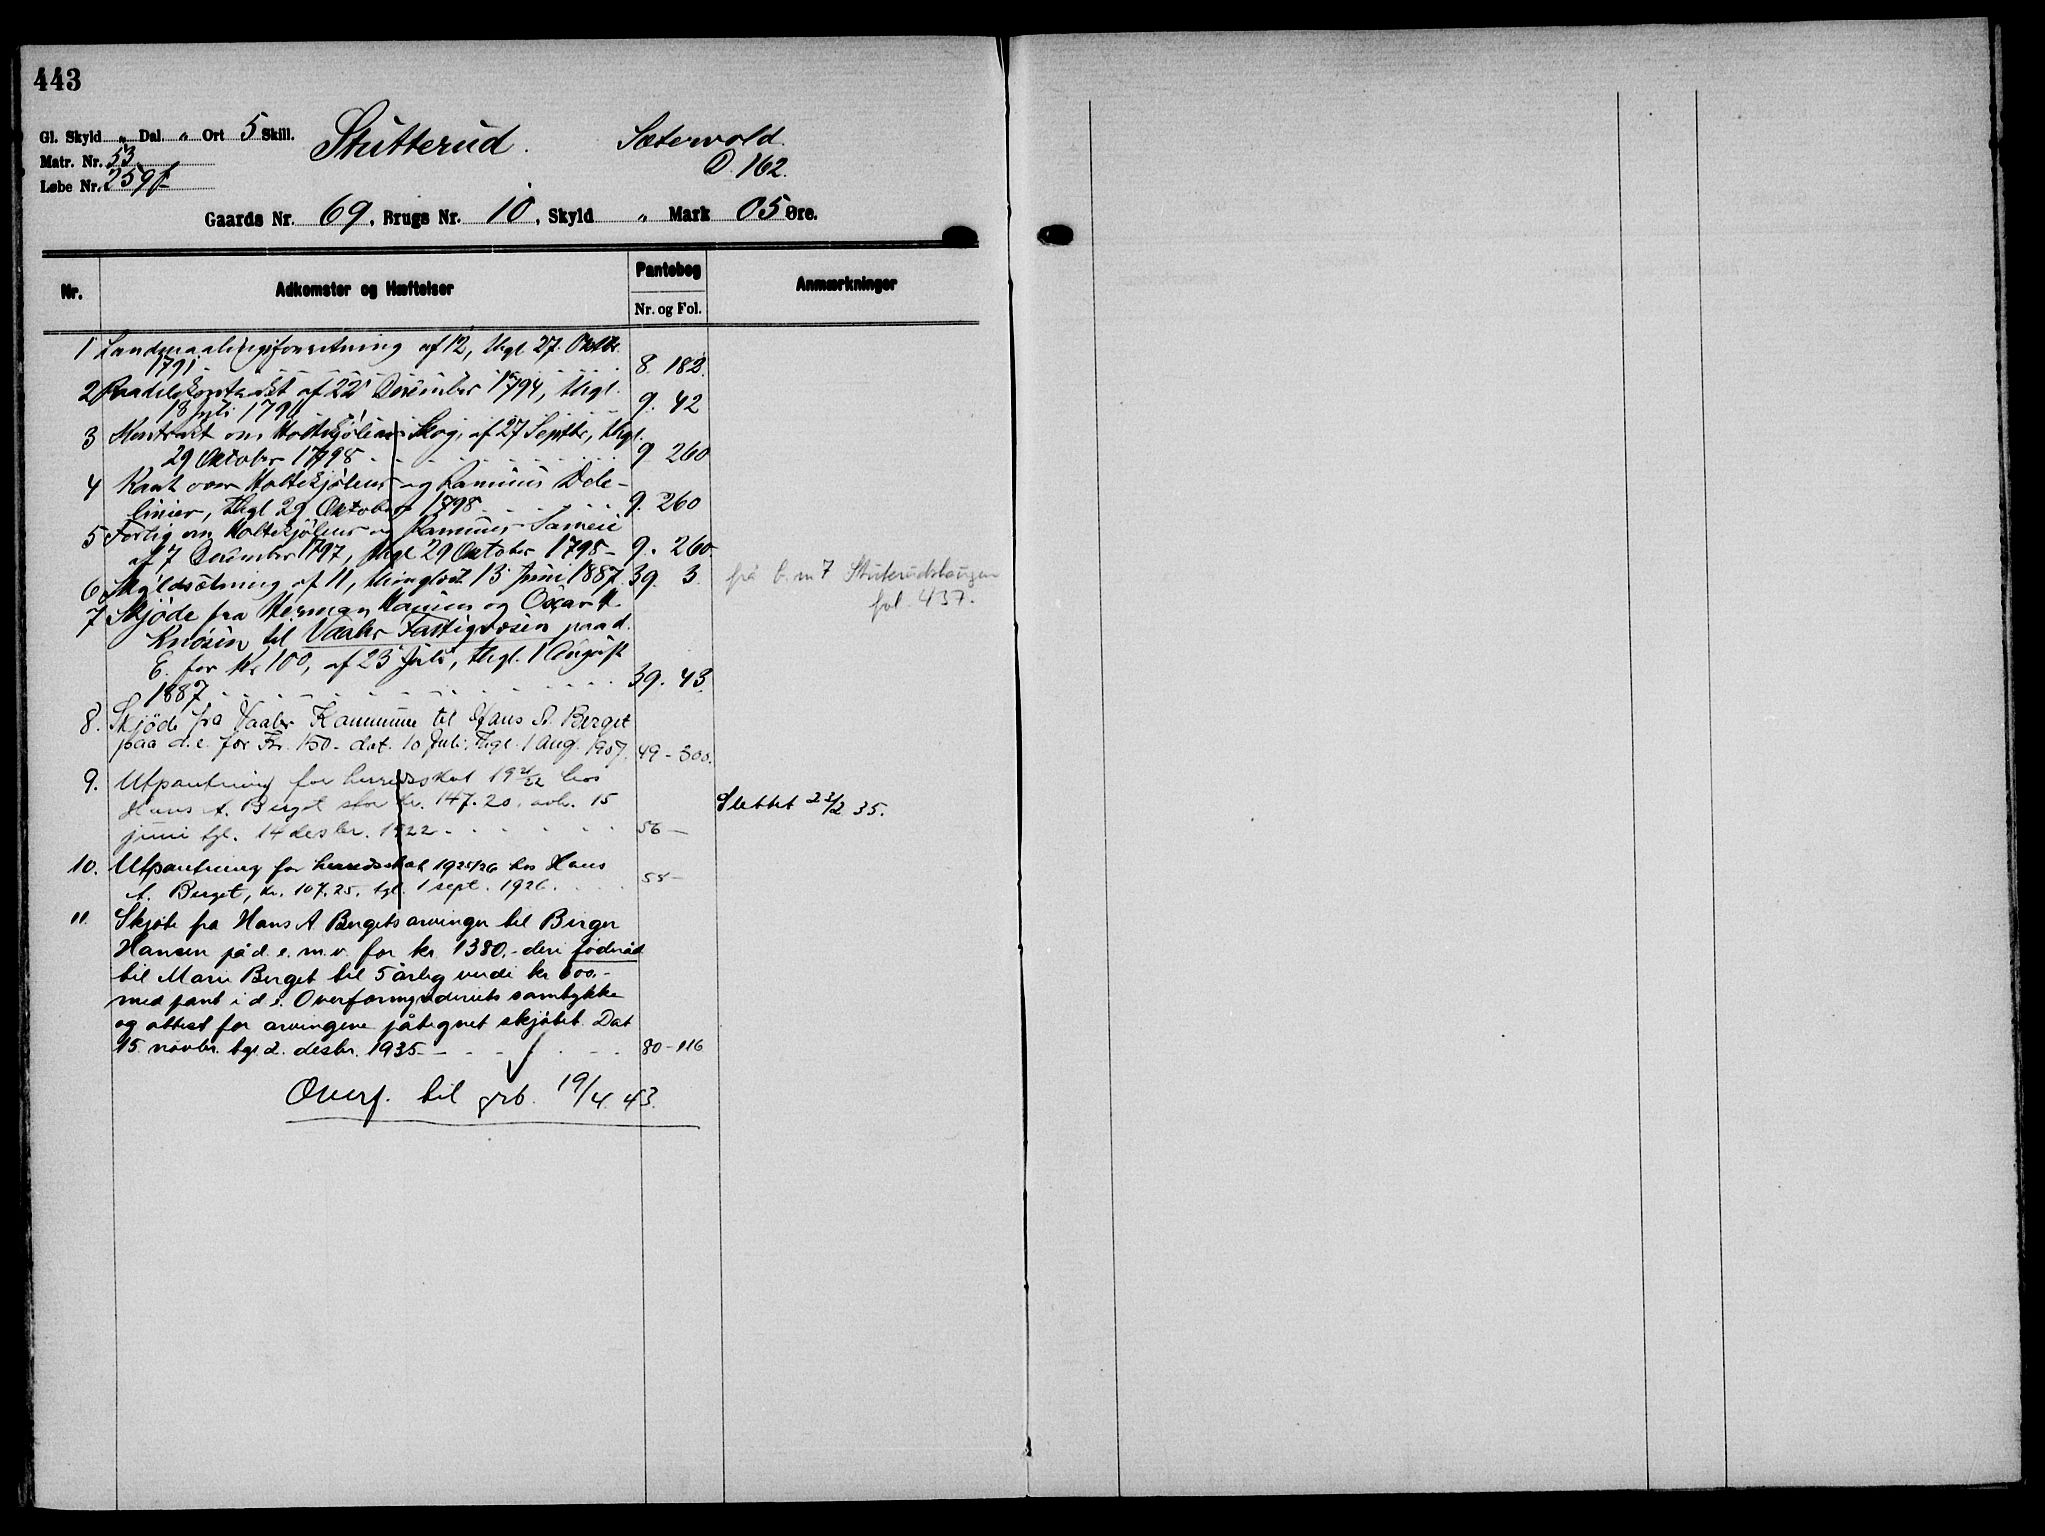 443
Gl. Skyld " Dal. " Ort 5 Skill.
Matr. Nr. 53
Løbe Nr. 259f
Stutterud. Sætervold.
D. 162.
Gaards Nr. 69, Brugs Nr. 10, Skyld " Mark 05 Øre.
Nr. Adkomster og Hæftelser Pantebog Anmærkninger
Nr. og Fol.
1 Landmaalingsforretning af 12, thgl 27. Oktbr.
1791 8. 182.
2 af 22 December 1794, thgl.
18 Juli 9. 42
3 Kontrakt om Holtekjølens Skog, af 27 Septbr, thgl.
29 Oktober 1798 9 260
4 over Holtekjølens og Ramsens Dele-
linier, thgl 29 Oktober 1798 9. 260
5 Forlig om Holtekjølens og Ramsens Sameie
af 7 December 1797, thgl 29 Oktober 1798 - 9. 260
6 Skyldsætning af 11, thinglæst 13 Juni 1887. 39. 3. frå b. nr 7 Stuterudshaugen
fol. 437.
7 Skjøde fra Herman Hansen og Oscar H.
til Vaaler Fattigvæsen paa d.
E. for Kr 100, af 23 Juli, thgl. 1 August
1887 39. 43.
8. Skjøde fra Vaaler Kommune til Hans A. Berget
paa d.e. for Kr. 150 - dat. 10 Juli, Thgl. 1 Aug. 1907. 49 - 300.
9. Utpantning for herredsskat 19 21/22 hos
Hans A. Berget stor kr. 147.20. avh. 15 Slettet 22/2 35.
juni tgl. 14 desbr. 1922 56 -
10. Utpantning for herredsskat 1925/26 hos Hans
A. Berget, kr. 107.25, tgl. 1 sept. 1926. 58 -
11. Skjøte fra Hans A Bergets arvinger til Birger
Hansen på d. e. m.v. for kr. 1380.- deri føderåd
til Marie Berget til 5 årlig verdi kr 600.-
med pant i d e. Overformynderiets samtykke
og attest for arvingene påtegnet skjøtet. Dat
15. novbr. tgl 2. desbr. 1935 80 - 116
Overf. til grb. 19/4. 43.